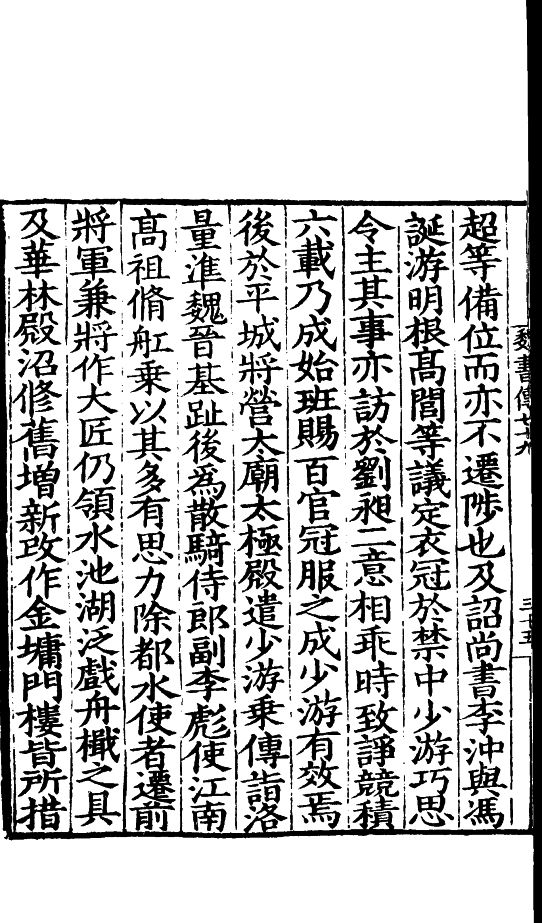 魏書傳七十九
三十五
超等備位而亦不遷陟也及詔尚書李沖與馮
誕游明根髙閭等議定衣冠於禁中少游巧思
令主其事亦訪於劉昶二意相乖時致諍競積
六載乃成始班賜百官冠服之成少游有效焉
後於平城將營太廟太極殿遣少游乗傳詣洛
量準魏晉基趾後為散騎侍郎副李彪使江南
髙祖脩舡乗以其多有思力除都水使者遷前
將軍兼將作大匠仍領水池湖泛戲舟檝之具
及華林殿沼修舊增新改作金墉門樓皆所措